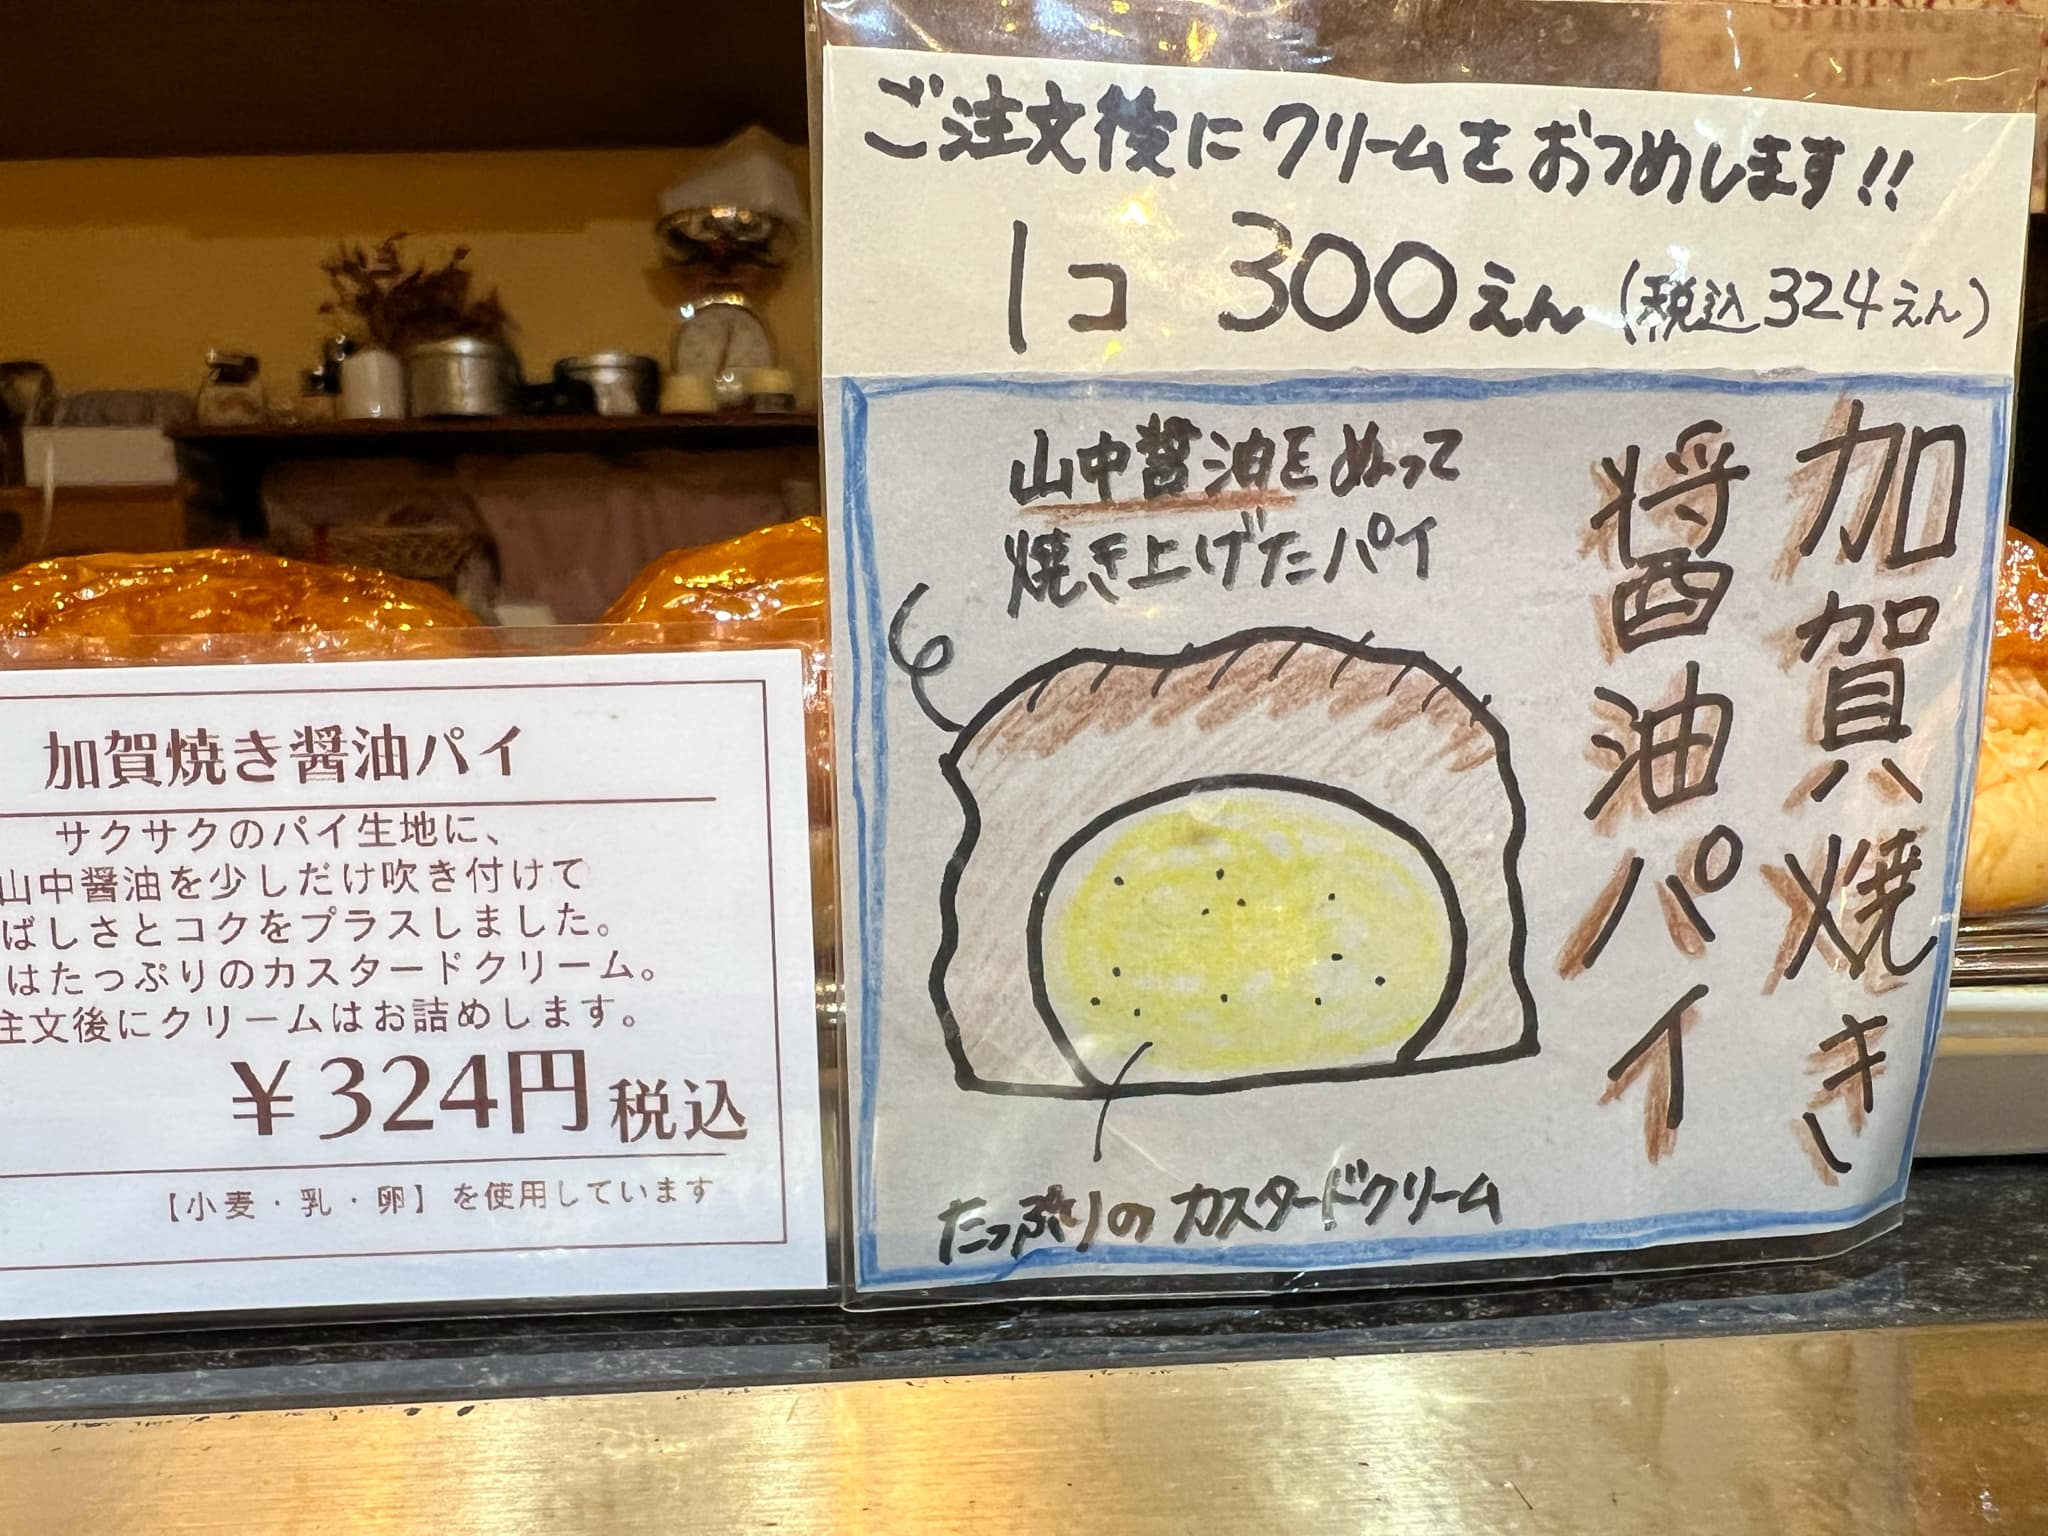 加賀焼き醤油パイ
サクサクのパイ生地に、
山中醤油を少しだけ吹き付けて
ばしさとコクをプラスしました。
はたっぷりのカスタードクリーム。
注文後にクリームはお詰めします。
¥324円 税込
【小麦・乳・卵】を使用しています
SPRING
GIFT
ご注文後にクリームをおつめします!!
1コ 300えん (税込324えん)
加賀焼き
醤油パイ
山中醤油をぬって
焼き上げたパイ
たっぷりのカスタードクリーム